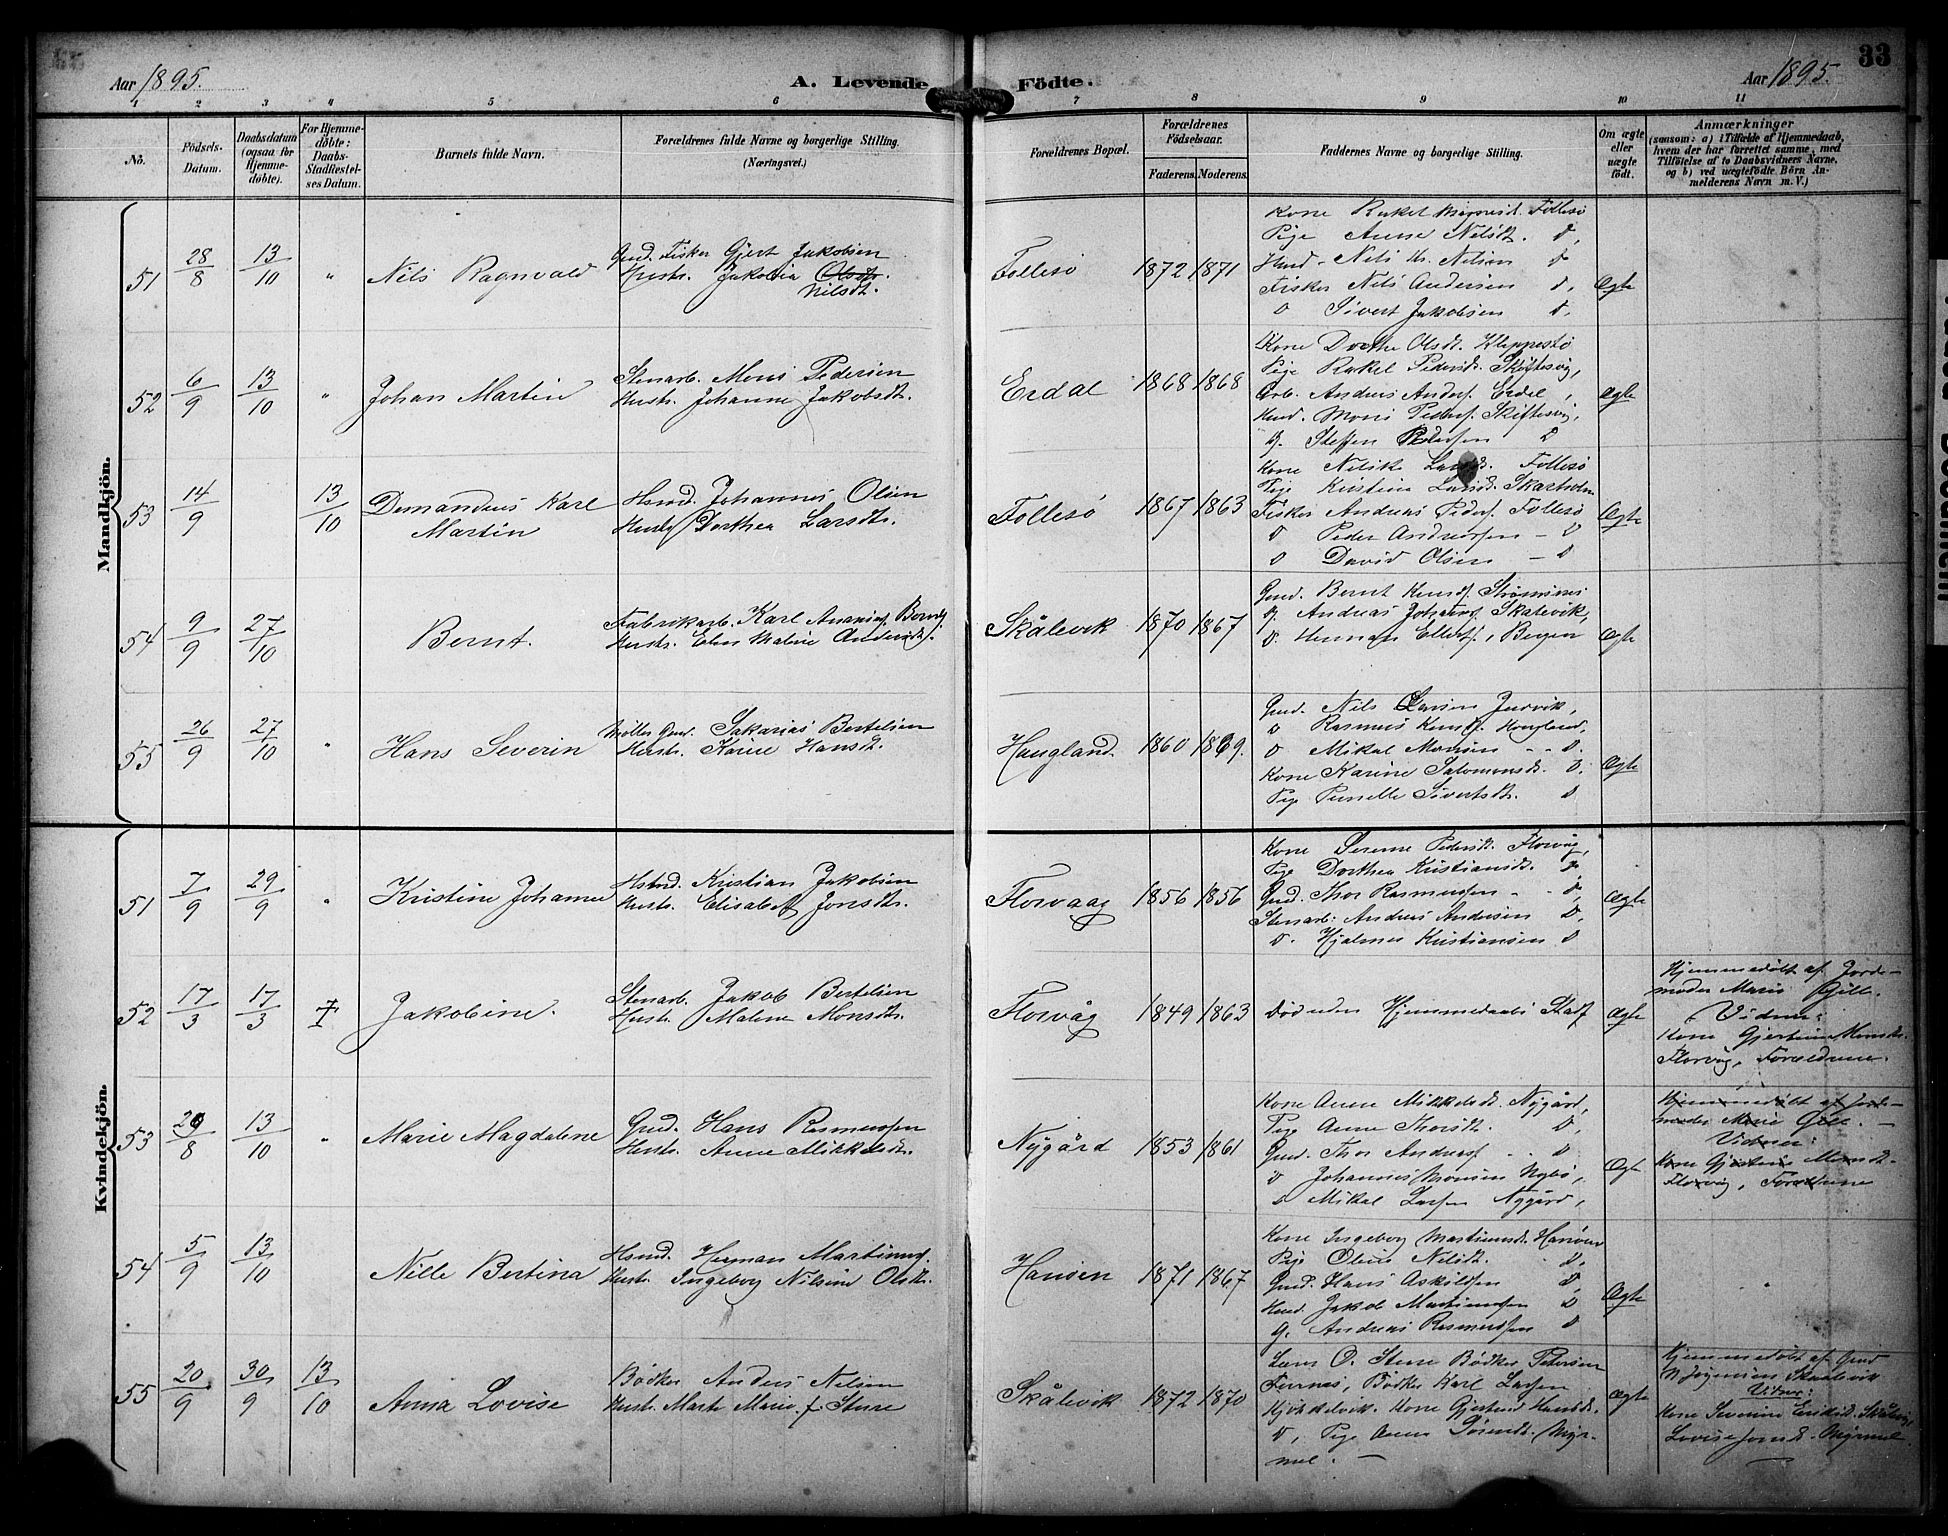 33
Aar 1895.
A. Levende Födte.
Aar 1895.
1 2 3 4 5 6 7 8 9 10 11
No.
Födsels-
Datum.
Daabsdatum
(ogsaa for
Hjemme-
döbte).
For Hjemme-
döbte:
Daabs-
Stadfæstel-
ses Datum.
Barnets fulde Navn.
Forældrenes fulde Navne og borgerlige Stilling.
(Næringsvei.)
Forældrenes Bopæl.
Forældrenes
Födselsaar.
Faderens. Moderens.
Faddernes Navne og borgerlige Stilling.
Om ægte
eller
uægte
födt.
Anmærkninger
(saasom: a) i Tilfælde af Hjemmedaab,
hvem der har forrettet samme, med
Tilföielse af to Daabsvidners Navne,
og b) ved uægtefödte Börn An-
melderens Navn m. V.)
Mandkjön.
51
28/8
13/10
"
Nils Ragnvald
Gmd. Fisker Gjert Jakobsen
Hustr. Jakobia Olsdtr.
Nilsdt.
Follesö
1872 1871
Kone Rakel Follesö
Pige Anne Nilsdt. d,
Nils Nilsen d
Fisker Nils Andersen d,
D Sivert Jakobsen d,
Ægte
52
6/9
13/10
"
Johan Martin
Stenarb. Mons Pedersen
Hustr. Johanne Jakobsdt.
Erdal
1868 1868
Kone Dorthe Olsdt. Kleppestö
Pige Rakel Pedersdt. Skiftesvig,
Arb. Andreas Anders. Erdal,
Mons Peders. Skiftesvig,
G. Steffen Pedersen D
Ægte
53
14/9
13/10
Demandeus Karl
Martin
Hsmd. Johannes Olsen
Hustr Dorthea Larsdtr.
Follesö
1867 1863
Kone Follesö
Pige Kristine Larsd. Skarholm
Fisker Andreas Peders. Follesö
D Peder Andreassen - D
D David Olsen - D
Ægte
54
9/9
27/10
Bernt.
Fabrikarb. Karl
Hustr. Elen Maline Andersdt.
Skålevik
1870 1867
Gmd. Bernt Knuds. Strömsnes
G. Andreas Johans. Skalevik,
D. Herman Ellefs., Bergen
Ægte
55
26/9
27/10
"
Hans Severin
Möller Gmd. Sakarias Bertelsen
Hustr. Karine Hansdt.
Haugland.
1860 1869.
Gmd. Nils Larsen Juvik,
D Rasmus Knuds. Haugland,
D Mikal Monsen - - D.
Kone Karine Salomonsdt. D,
Pige Pernille Sivertsdt. D
Ægte
Kvindekjön.
51
7/9
29/9
"
Kristine Johanne
Hsmd. Kristian Jakobsen
Hustr. Elisabet Jonsdtr.
Florvaag
1856 1856
Kone Serene Pedersdt. Florvåg,
Pige Dorthea Kristiansdt. D,
Gmd. Thor Rasmussen - - D,
Stenarb: Andreas Andersen D,
D. Hjalmar Kristiansen D
Ægte
52
17/3
17/3
Jakobine.
Stenarb. Jakob Bertelsen
Hustr. Malene Monsdtr.
Florvåg
1849 1863
Död uden Hjemmedaabs Staf
Ægte
Hjemmedöbt af Jorde-
moder Marie Gjille.
Vidner:
Kone Gjertine Monsdt.
Florvåg, Forældrene.
53
29/8
13/10
"
Marie Magdalene
Gmd. Hans Rasmussen
Hustr. Anne Mikkelsdt.
Nygård
1853 1861
Kone Anne Mikkelsdt. Nygård,
Pige Anne Thorsdt. D,
Gmd. Thor Anders. - - D
D Johannes Monsen Nybö,
D Mikal Larsen Nygård,
Ægte
Hjemmedöbt af Jorde-
moder Marie Gjille. -
Vidner:
Kone Gjertine Monsdt-
Florvåg, Forældrene
54
5/9
13/10
Nille Bertina
Hsmd. Herman Martinus.
Hustr. Ingeborg Nilsine Olsdt.
Hanöen
1871 1867
Kone Ingeborg Martinusdt. Hanöen
Pige Oline Nilsdt. D,
Gmd. Hans Askildsen D,
Jakob Martinussen D
G. Andreas Rasmussen D
Ægte
"
55
20/9
30/9
13/10
Anna Lovise
Bödker Anders Nilsen
Hustr. Marta Marie f. Sture
Skålevik
1872 1870
Sture Bödker Petersen
Bödker Karl Larsen
Kone Gjertrud Hansdt.
D, Pige Anna Myr-
mel. -
Ægte
Hjemmedöbt af Gmd
Skaalevik
Vidner:
Kone Severine
Lovise Myrmel.